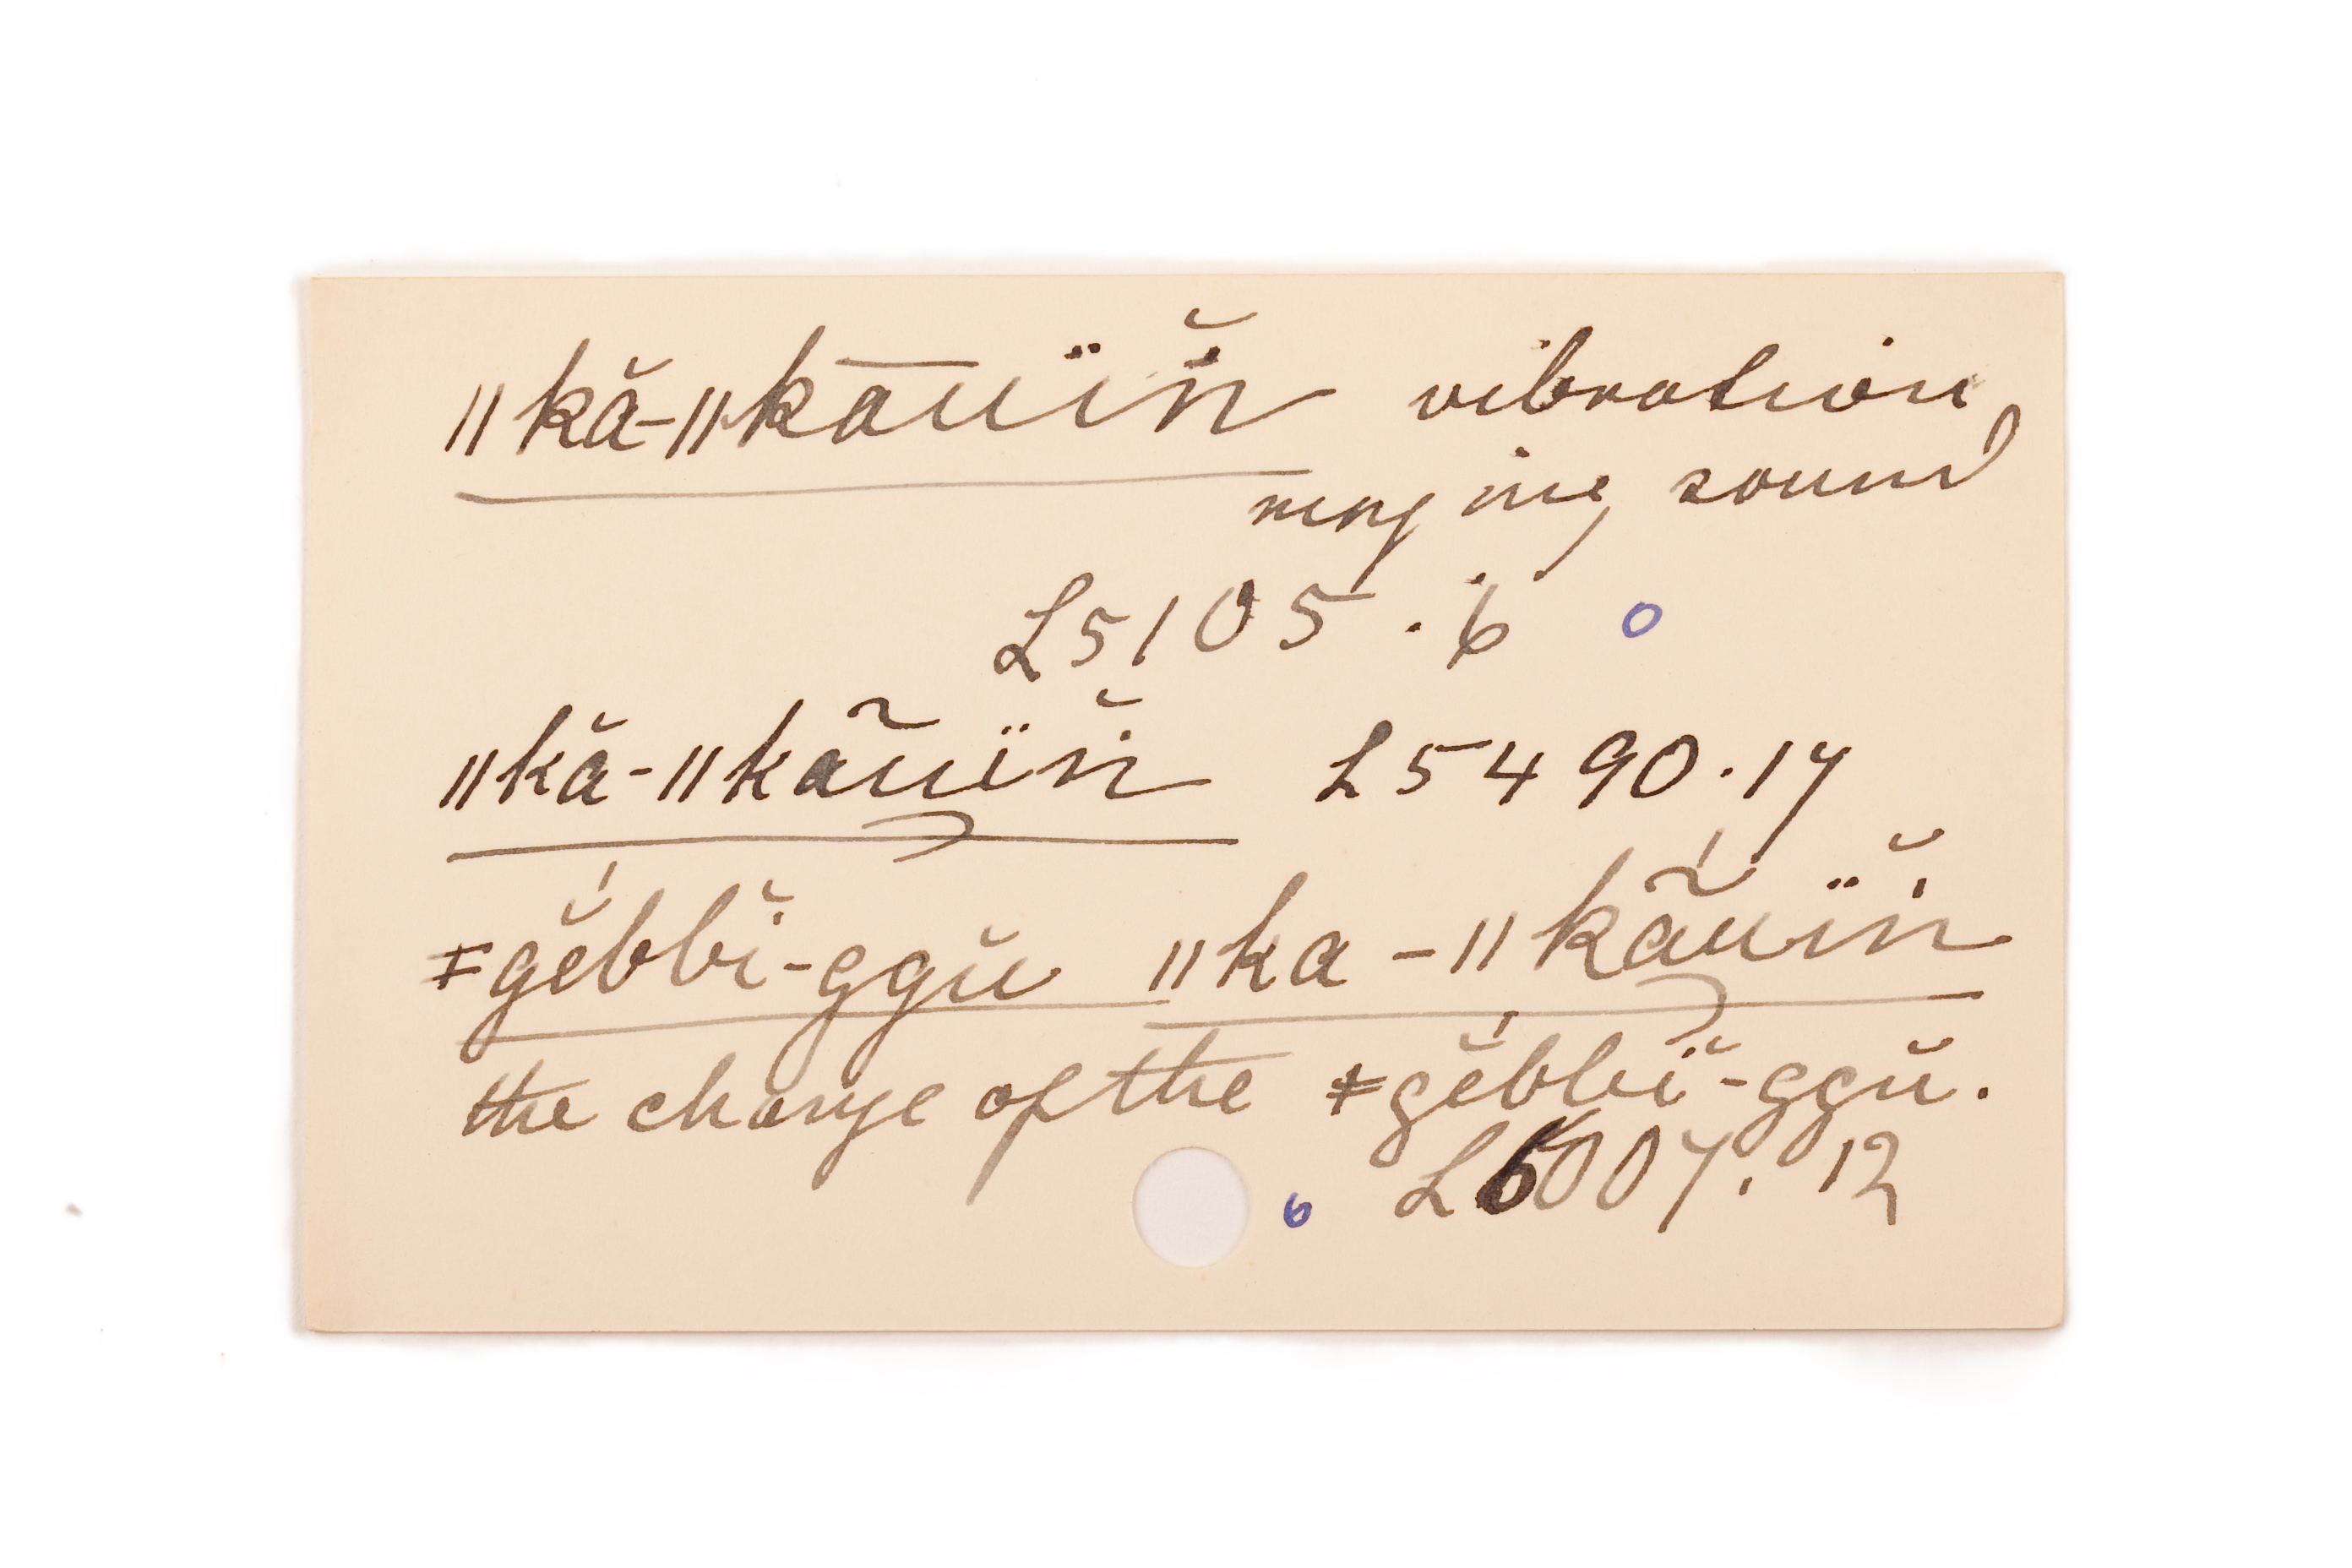 ǁkă-ǁkāuïn̆ vibration,
ringing sound
L5105.6 o
ǁkă-ǁkãuïn̆ L5490.17
ǂgĕ́bbĭ-ggŭ ǁka-ǁkã́uïn̆
the change of the ǂgĕ́bbĭ-ggŭ.
6 L6007.12